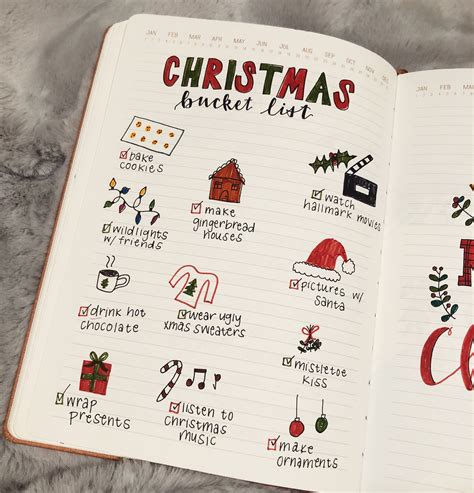 JAN FEB MAR APR MAY JUN JUL AUG SEP OCT NOV DEC
CHRISTMAS
bucket list
bake
cookies
make
gingerbread
houses
watch
hallmark movies
wildlights
w/ friends
pictures w/
Santa
drink hot
chocolate
wear ugly
xmas sweaters
mistletoe
kiss
wrap
presents
listen to
christmas
music
make
ornaments
JAN FEB MAR APR